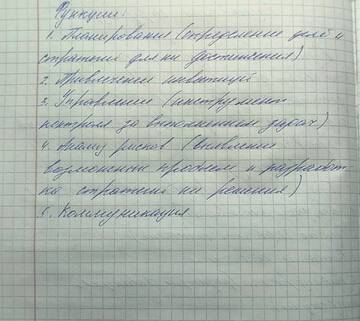 Функции:
1. Планирование (определение целей и
стратегии для их достижения)
2. Привлечение инвестиций
3. Управление (инструмент
контроля за выполнением задач)
4. Анализ рисков (выявление
возможных проблем и разработ
ка стратегии их решения)
5. Коммуникация